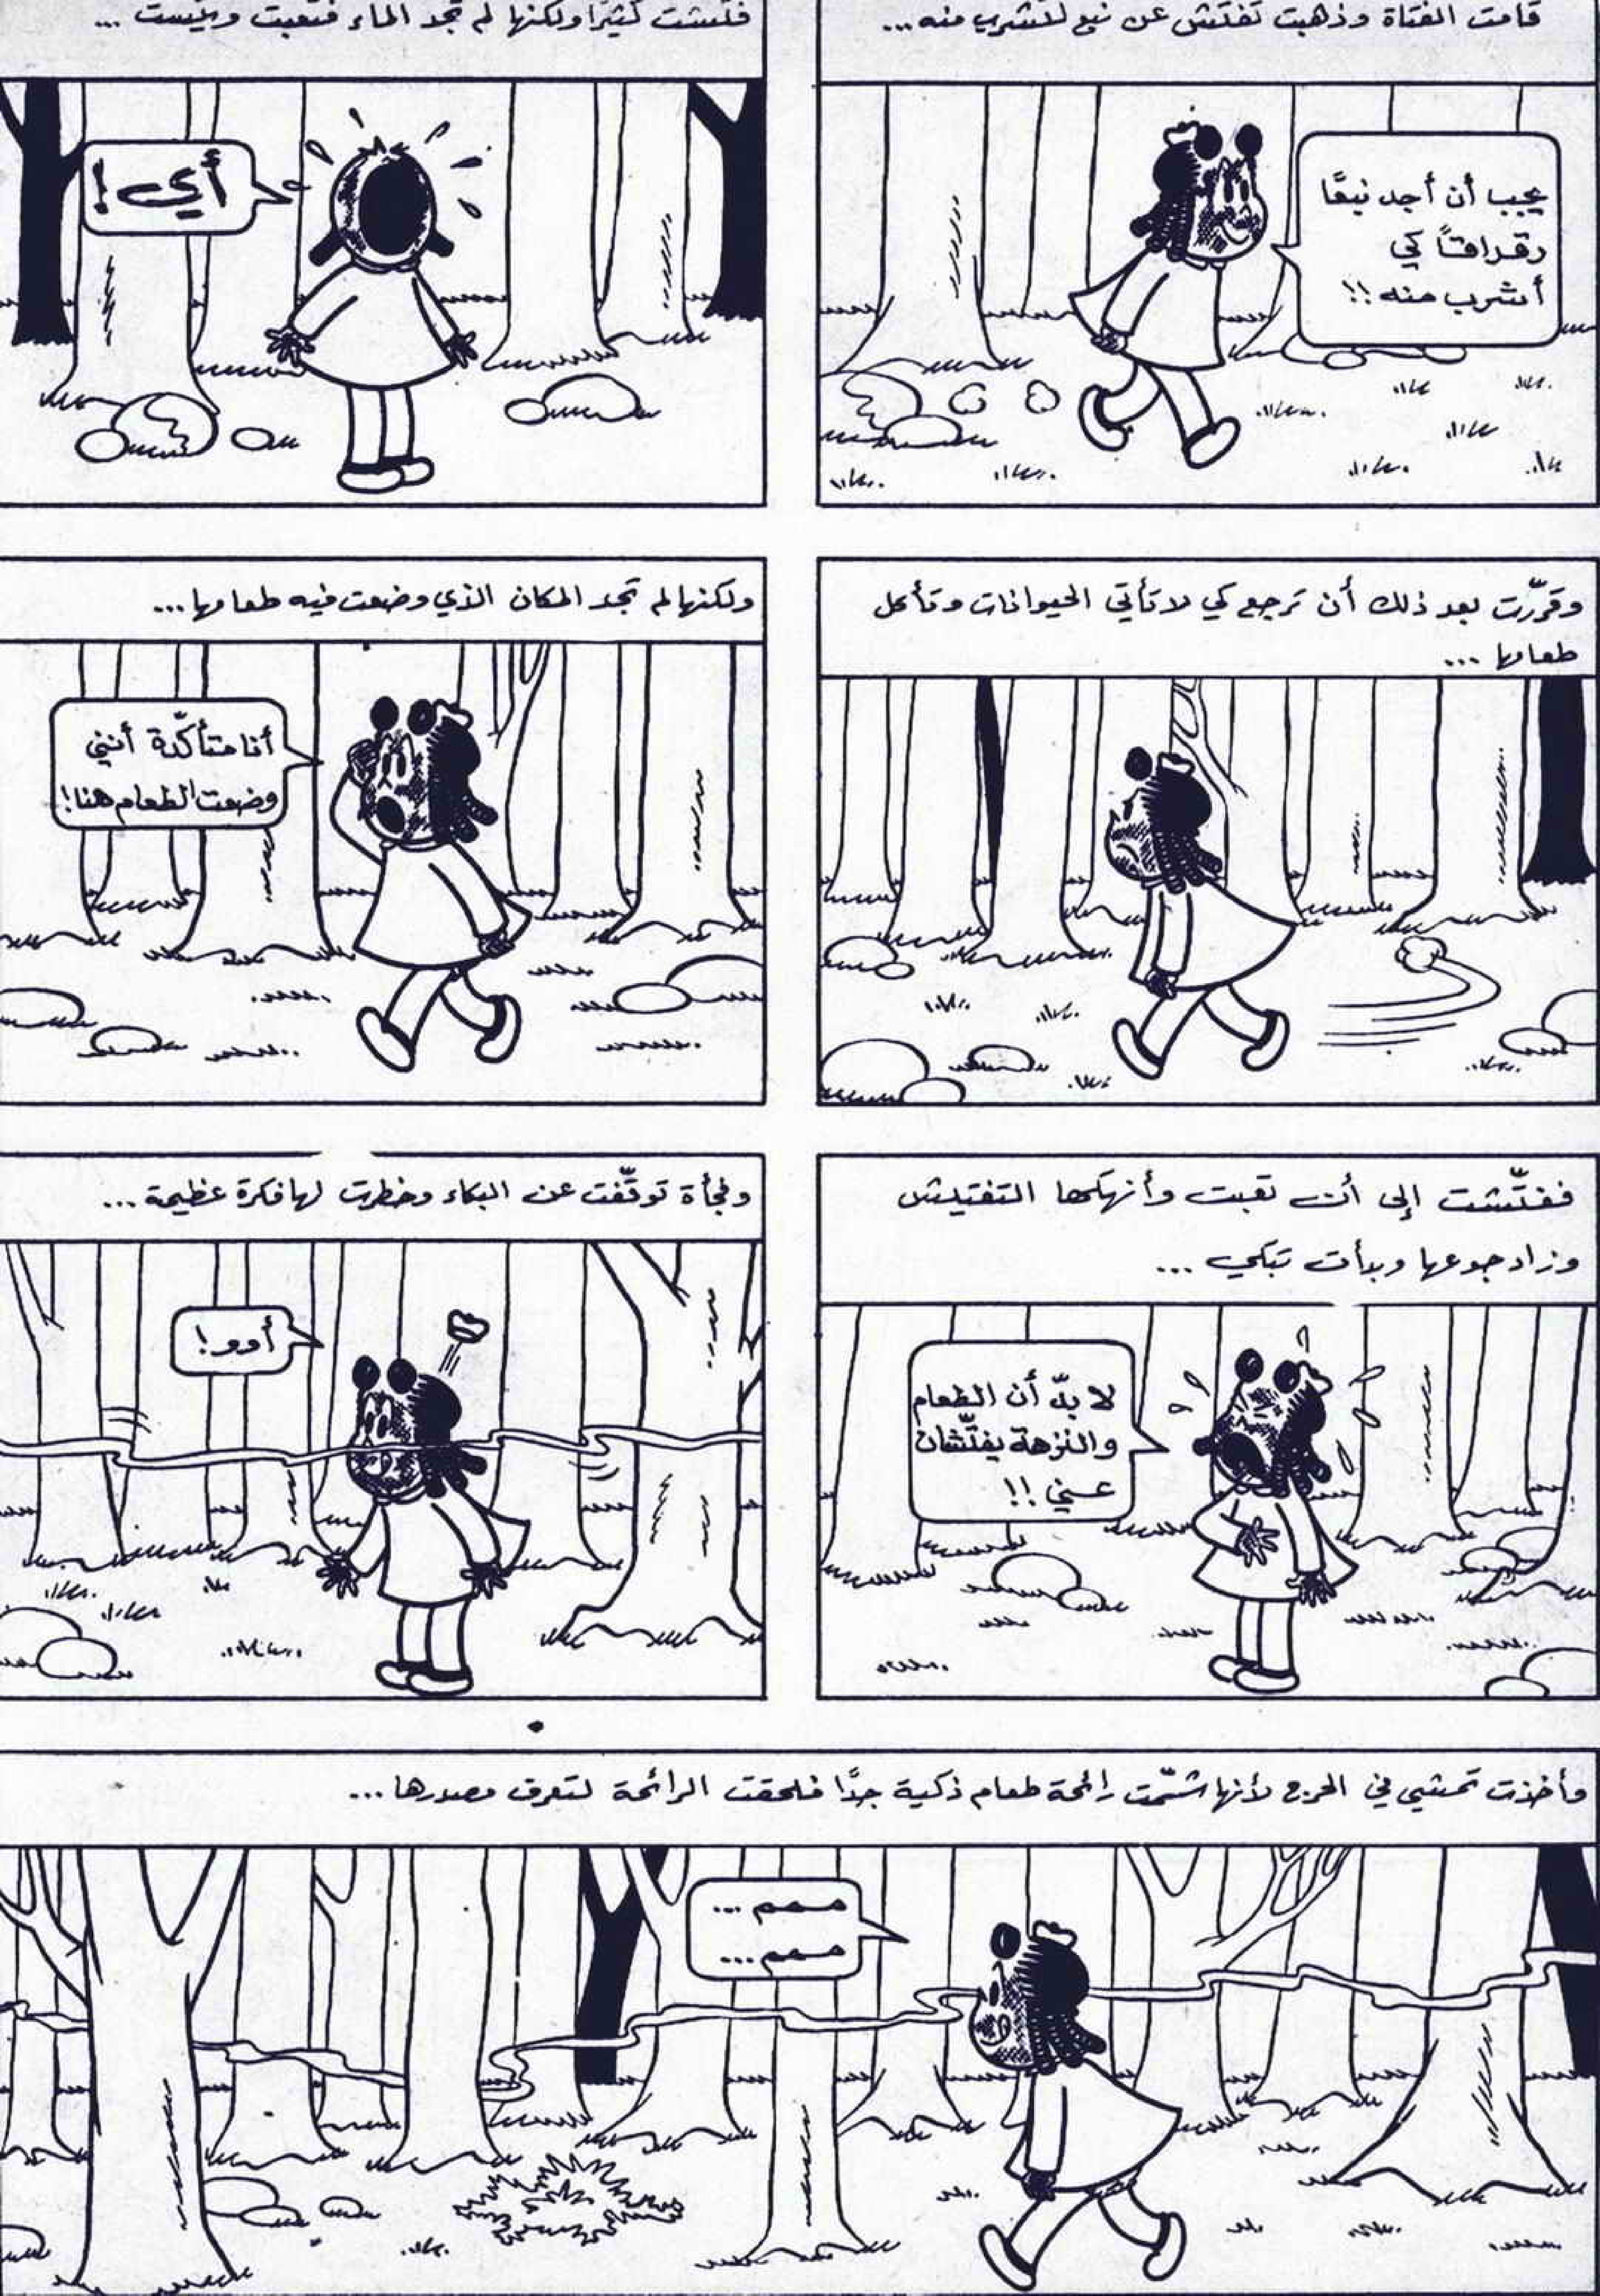 قامت الفتاة وذهبت تفتش عن نبع لتشرب منه...
يجب أن أجد نبعًا
رقراقًا كي
أشرب منه!!
فتّشت كثيرًا ولكنها لم تجد الماء فتعبت ويئست ...
أي!
وقرّرت بعد ذلك أن ترجع كي لا تأتي الحيوانات وتأكل
طعامها ...
ولكنها لم تجد المكان الذي وضعت فيه طعامها...
أنا متأكّدة أنني
وضعت الطعام هنا!
ففتّشت إلى أن تعبت وأنهكها التفتيش
وزاد جوعها وبدأت تبكي ...
لا بدّ أن الطعام
والنزهة يفتّشان
عني!!
وفجأة توقّفت عن البكاء وخطرت لها فكرة عظيمة ...
أوو!
وأخذت تمشي في الحرج لأنها شمّت رائحة طعام ذكية جدًّا فلحقت الرائحة لتعرف مصدرها...
ممم ...
ممم ...